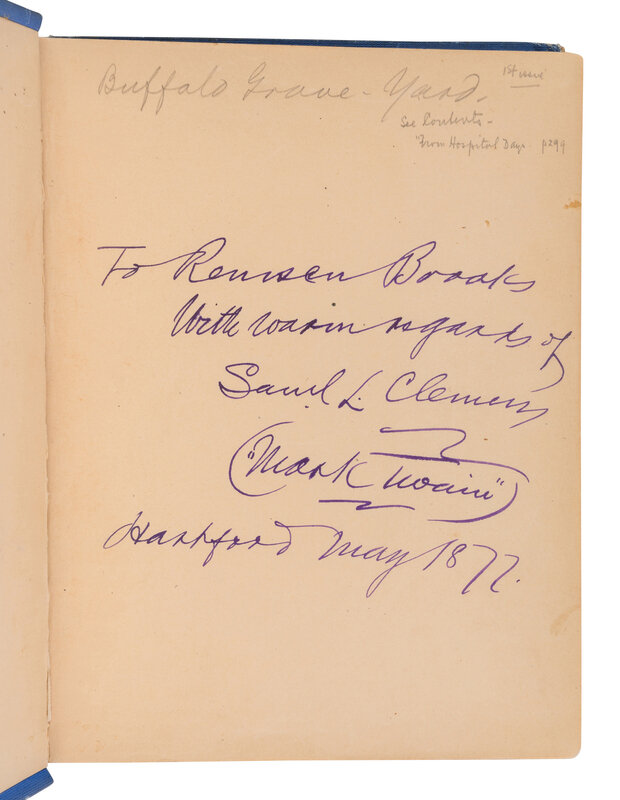 Buffalo Grave-Yard.
1st issue
See Contents-
"From Hospital Days- p299
To Remsen Brooks
With warm regards of
Saml L. Clemens
("Mark Twain")
Hartford May 1877.